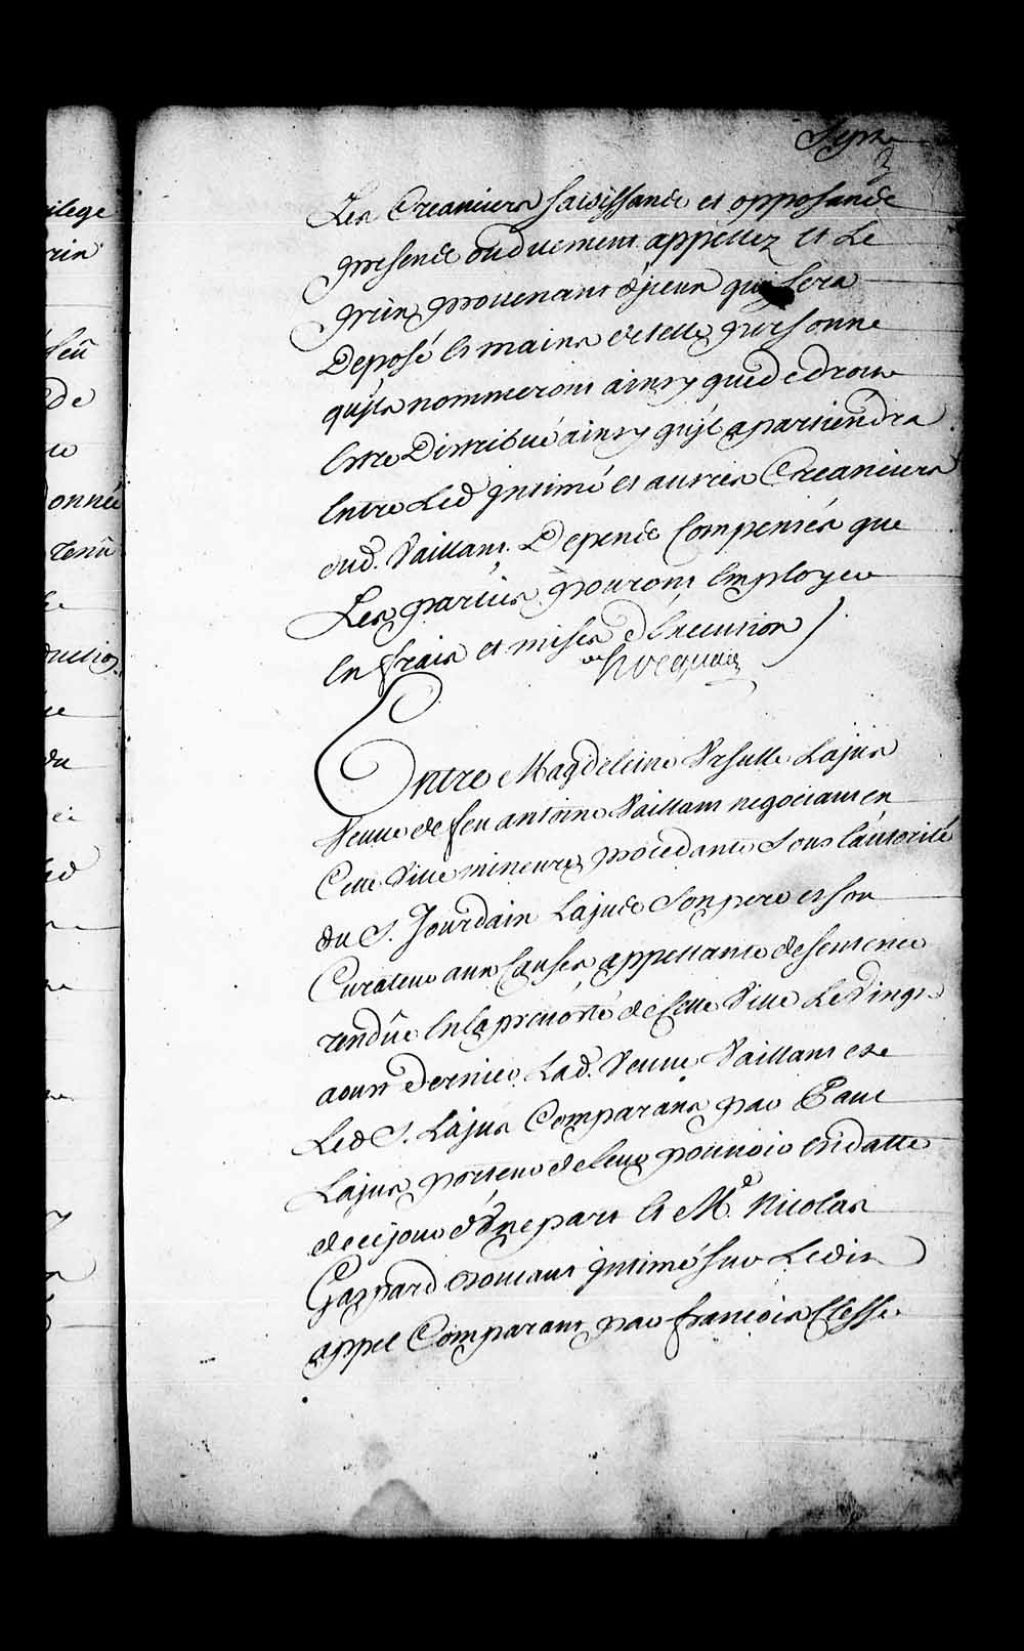 ilege
rin
feu
de
onnée
tenu
duction
du
Sept
Les Creanciers saisissants et opposants
presents ou duement appellez et Le
prix provenant d'jceux quj sera
Deposé Es mains de telle personne
qujls nommeront ainsy que de droit
Estre Distribué ainsy qujl apartiendra
Entre Led jntimé et autres Creanciers
dud. Vaillant. Depends Compensés que
Les parties pouront Employer
En frais et mises d'Execution /
hocquart
Entre Magdeleine Ursulle Lajus
Veuve de feu antoine Vaillant negociant en
Cette Ville mineure, procedante sous l'autorité
du S. Jourdain Lajus Son pere et son
Curateur aux Causes appellante de sentence
rendüe En la prevosté de Cette Ville Le Vingt
aoust dernier, Lad. Veuve Vaillant et
Led S. Lajus Comparans par Paul
Lajus porteur de leur pouvoir En datte
de ce jour d'Une part Et Me. Nicolas
Gaspard Boucault jntimé sur Ledit
appel Comparant par françois Clesse